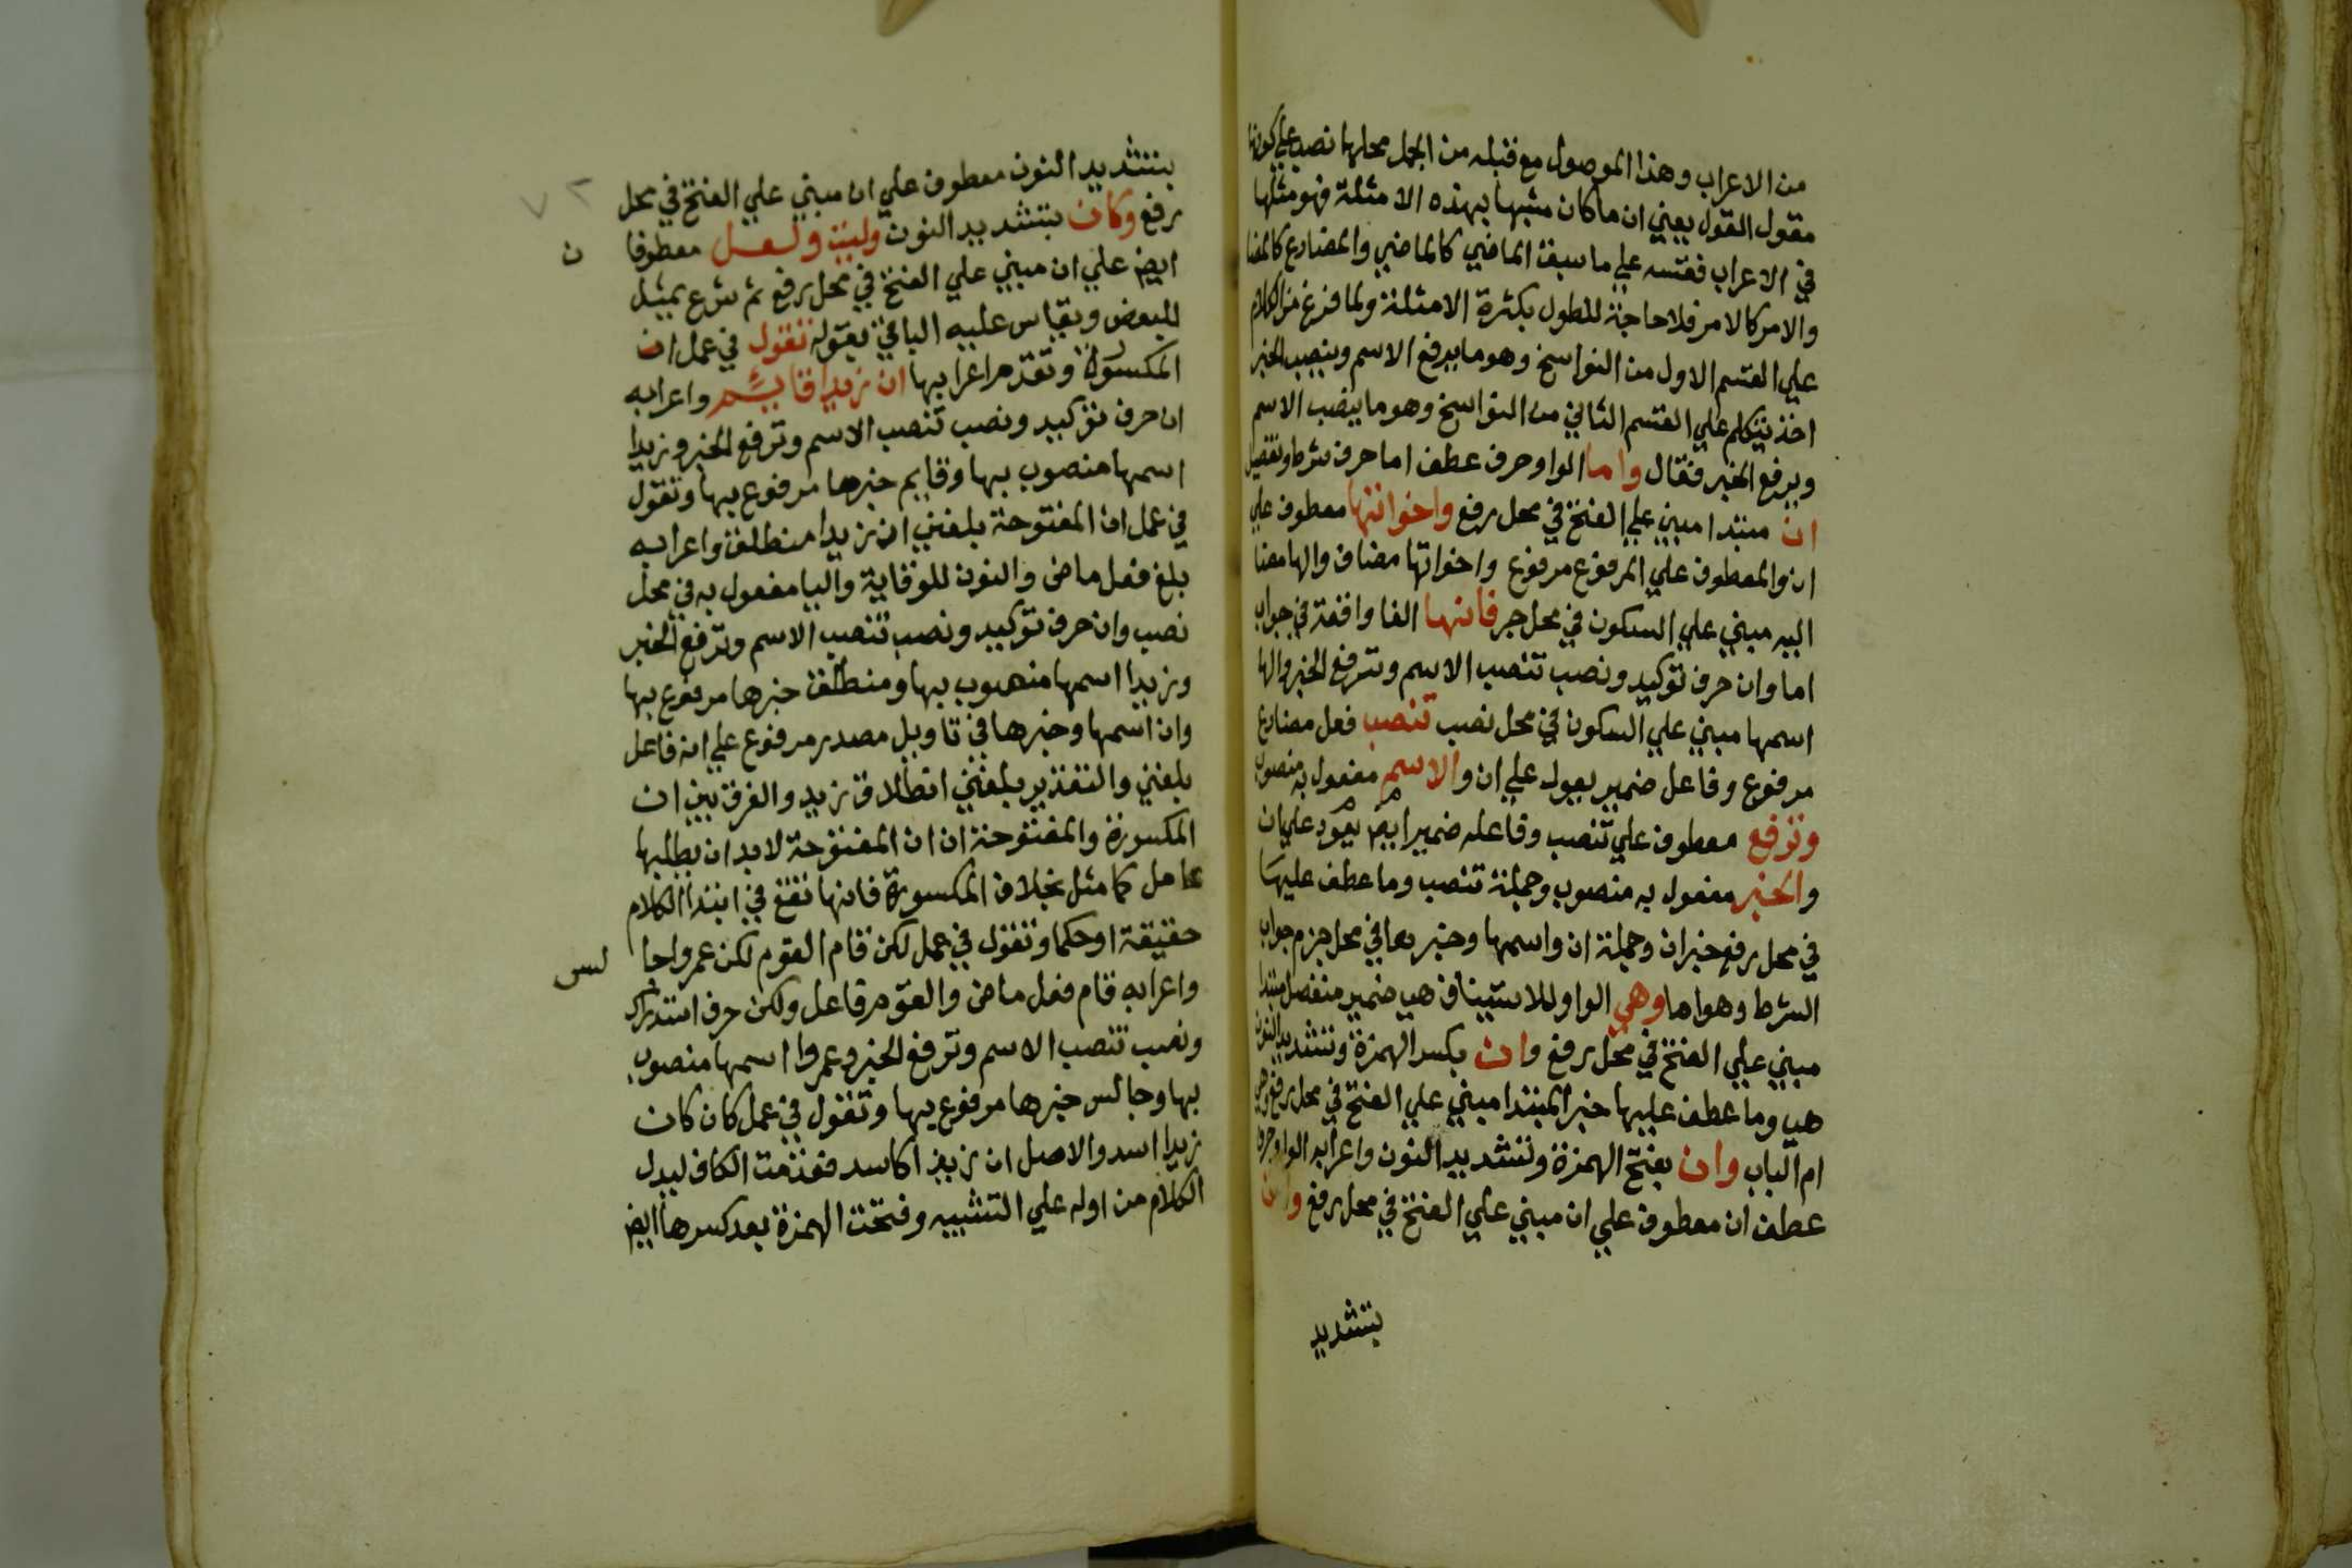 من الاعراب وهذا الموصول مع قبله من الجمل محلها نصب علي كونها
مقول القول يعني ان ما كان مشبها بهذه الامثلة فهو مثلها
في الاعراب فقسه علي ما سبق الماضي كالماضي والمضارع كالمضا
والامر كالامر فلا حاجة للطول بكثرة الامثلة ولما فرغ من الكلام
علي القسم الاول من النواسخ وهو ما يرفع الاسم وينصب الخبر
اخذ يتكلم علي القسم الثاني من النواسخ وهو ما ينصب الاسم
ويرفع الخبر فقال واما الواو حرف عطف اما حرف شرط وتفصيل
ان مبتدا مبني علي الفتح في محل رفع واخواتها معطوف علي
ان والمعطوف علي المرفوع مرفوع واخواتها مضاف والها مضا
اليه مبني علي السكون في محل جر فانها الفا واقعة في جواب
اما وان حرف توكيد ونصب تنصب الاسم وترفع الخبر والها
اسمها مبني علي السكون في محل نصب تنصب فعل مضارع
مرفوع وفاعل ضمير يعود علي ان والاسم مفعول به منصوب
وترفع معطوف علي تنصب وفاعله ضمير ايض يعود علي ان
والخبر مفعول به منصوب وجملة تنصب وما عطف عليها
في محل رفع خبر ان وجملة ان واسمها وخبرها في محل جزم جواب
الشرط وهو اما وهي الواو للاستيناف هي ضمير منفصل مبتدا
مبني علي الفتح في محل رفع وان بكسر الهمزة وتشديد النون
هي وما عطف عليها خبر المبتدا مبني علي الفتح في محل رفع وهي
ام الباب وان بفتح الهمزة وتشديد النون واعرابه الواو حرف
عطف ان معطوف علي ان مبني علي الفتح في محل رفع
بتشديد
بتشديد النون معطوف علي ان مبني علي الفتح في محل
رفع وكان بتشديد النون وليت ولعل معطوفا
ن
ايض علي ان مبني علي الفتح في محل رفع ثم شرع يمثل
للبعض ويقاس عليه الباقي بقوله تقول في عمل ان
المكسورة وتقدم اعرابها ان زيدا قايم واعرابه
ان حرف توكيد ونصب تنصب الاسم وترفع الخبر وزيدا
اسمها منصوب بها وقايم خبرها مرفوع بها وتقول
في عمل ان المفتوحة بلغني ان زيدا منطلق واعرابه
بلغ فعل ماض والنون للوقاية واليا مفعول به في محل
نصب وان حرف توكيد ونصب تنصب الاسم وترفع الخبر
وزيدا اسمها منصوب بها ومنطلق خبرها مرفوع بها
وان اسمها وخبرها في تاويل مصدر مرفوع علي انه فاعل
بلغني والتقدير بلغني انطلاق زيد والفرق بين ان
المكسورة والمفتوحة ان ان المفتوحة لا بد ان يطلبها
عامل كما مثل بخلاف المكسورة فانها تقع في ابتدا الكلام
حقيقة او حكما وتقول في عمل لكن قام القوم لكن عمروا جا
لس
واعرابه قام فعل ماض والقوم فاعل ولكن حرف استدراك
ونصب تنصب الاسم وترفع الخبر وعمروا اسمها منصوب
بها وجالس خبرها مرفوع بها وتقول في عمل كان كان
زيدا اسد والاصل ان زيدا كاسد فقدمت الكاف ليدل
الكلام من اوله علي التشبيه وفتحت الهمزة بعد كسرها ايض